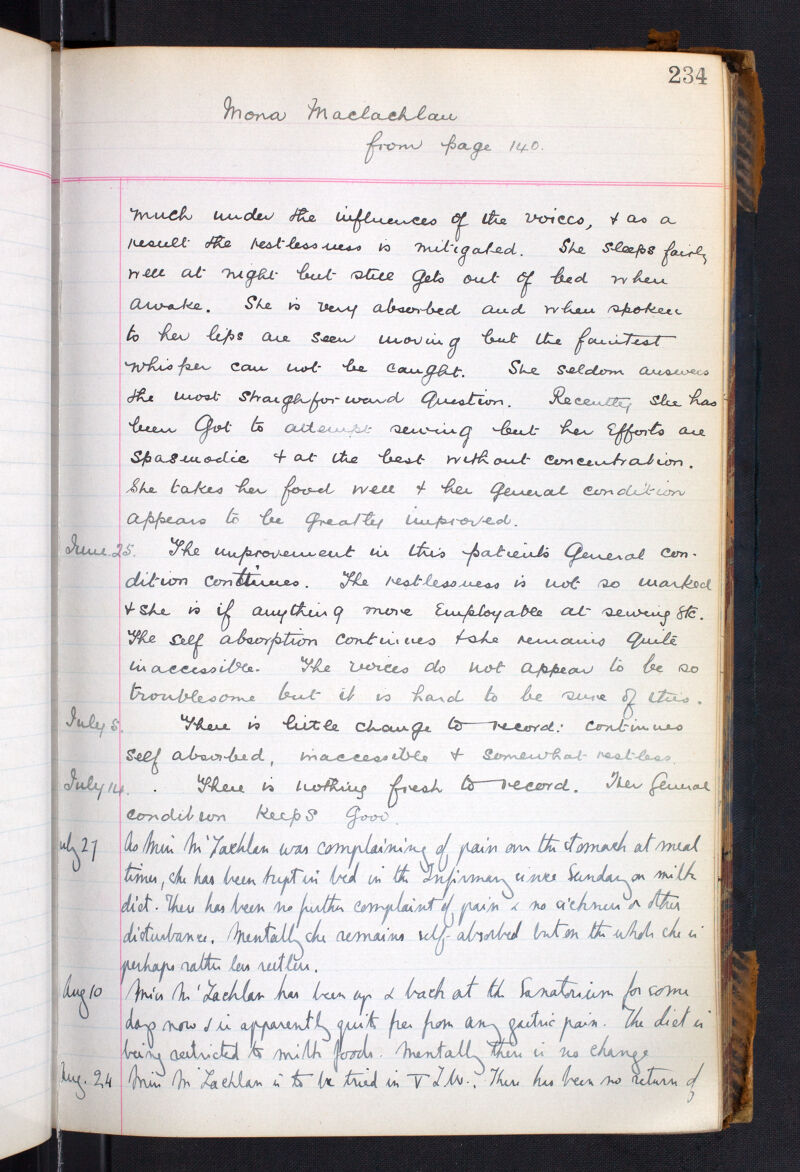 234
Mona Maclachlan
from page 140.
much under the influences of the voices, & as a
result the restlessness is mitigated. She sleeps fairly
well at night but still gets out of bed when
awake. She is very absorbed and when spoken
to her lips are seen moving but the faintest
whisper can not be caught. She seldom answers
the most straighforward question. Recently she has
been got to attempt sewing but her efforts are
spasmodic & at the best without concentration.
She takes her food well & her general condition
appears to be greatly improved.
June 25. The improvement in this patients General con-
dition continues. The restlessness is not so marked
& she is if anything more Employable at sewing &c.
The self absorption continues & she remains quite
inaccessible. The voices do not appear to be so
troublesome but it is hard to be sure of this.
July 5. There is little change to record: continues
self absorbed, inaccessible & somewhat restless.
July 14. There is nothing fresh to record. Her General
condition keeps good.
July 27 As Miss McLachlan was complaining of pain over the stomach at meal
times, she has been kept in bed in the Infirmary since Sunday on milk
diet. There has been no further complaint of pain & no sickness or other
disturbance. Mentally she remains self-absorbed but on the whole she is
perhaps rather less restless.
Aug 10 Miss McLachlan has been up & back at the Sanatorium for some
days now & is apparently quite free from any gastric pain. The diet is
being restricted to milk foods. Mentally there is no change
Aug. 24 Miss McLachlan is to be tried in There has been no return of